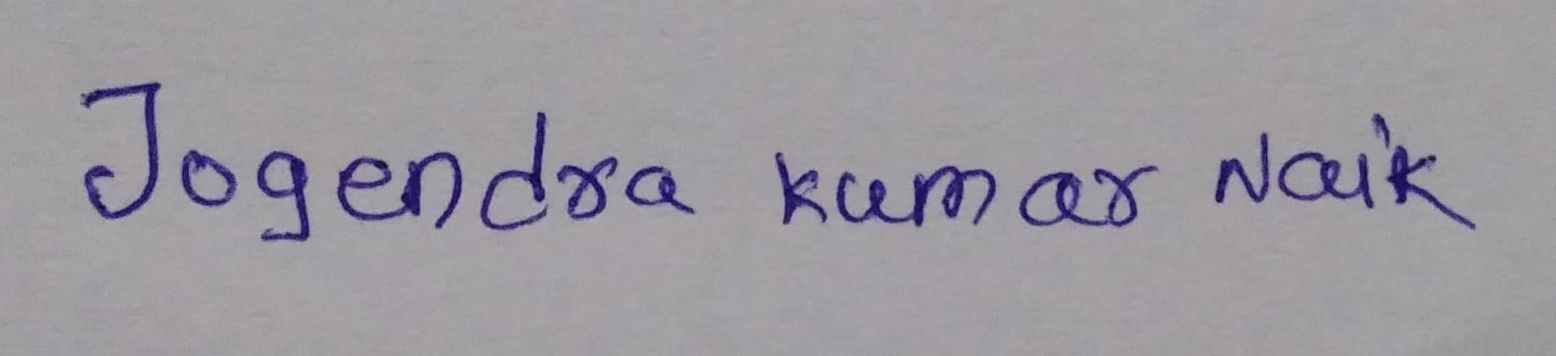 Jogendra kumar Naik